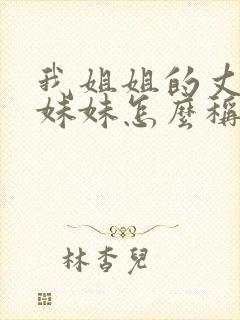 我姐姐的丈
妹妹怎麼稱
林杏兒